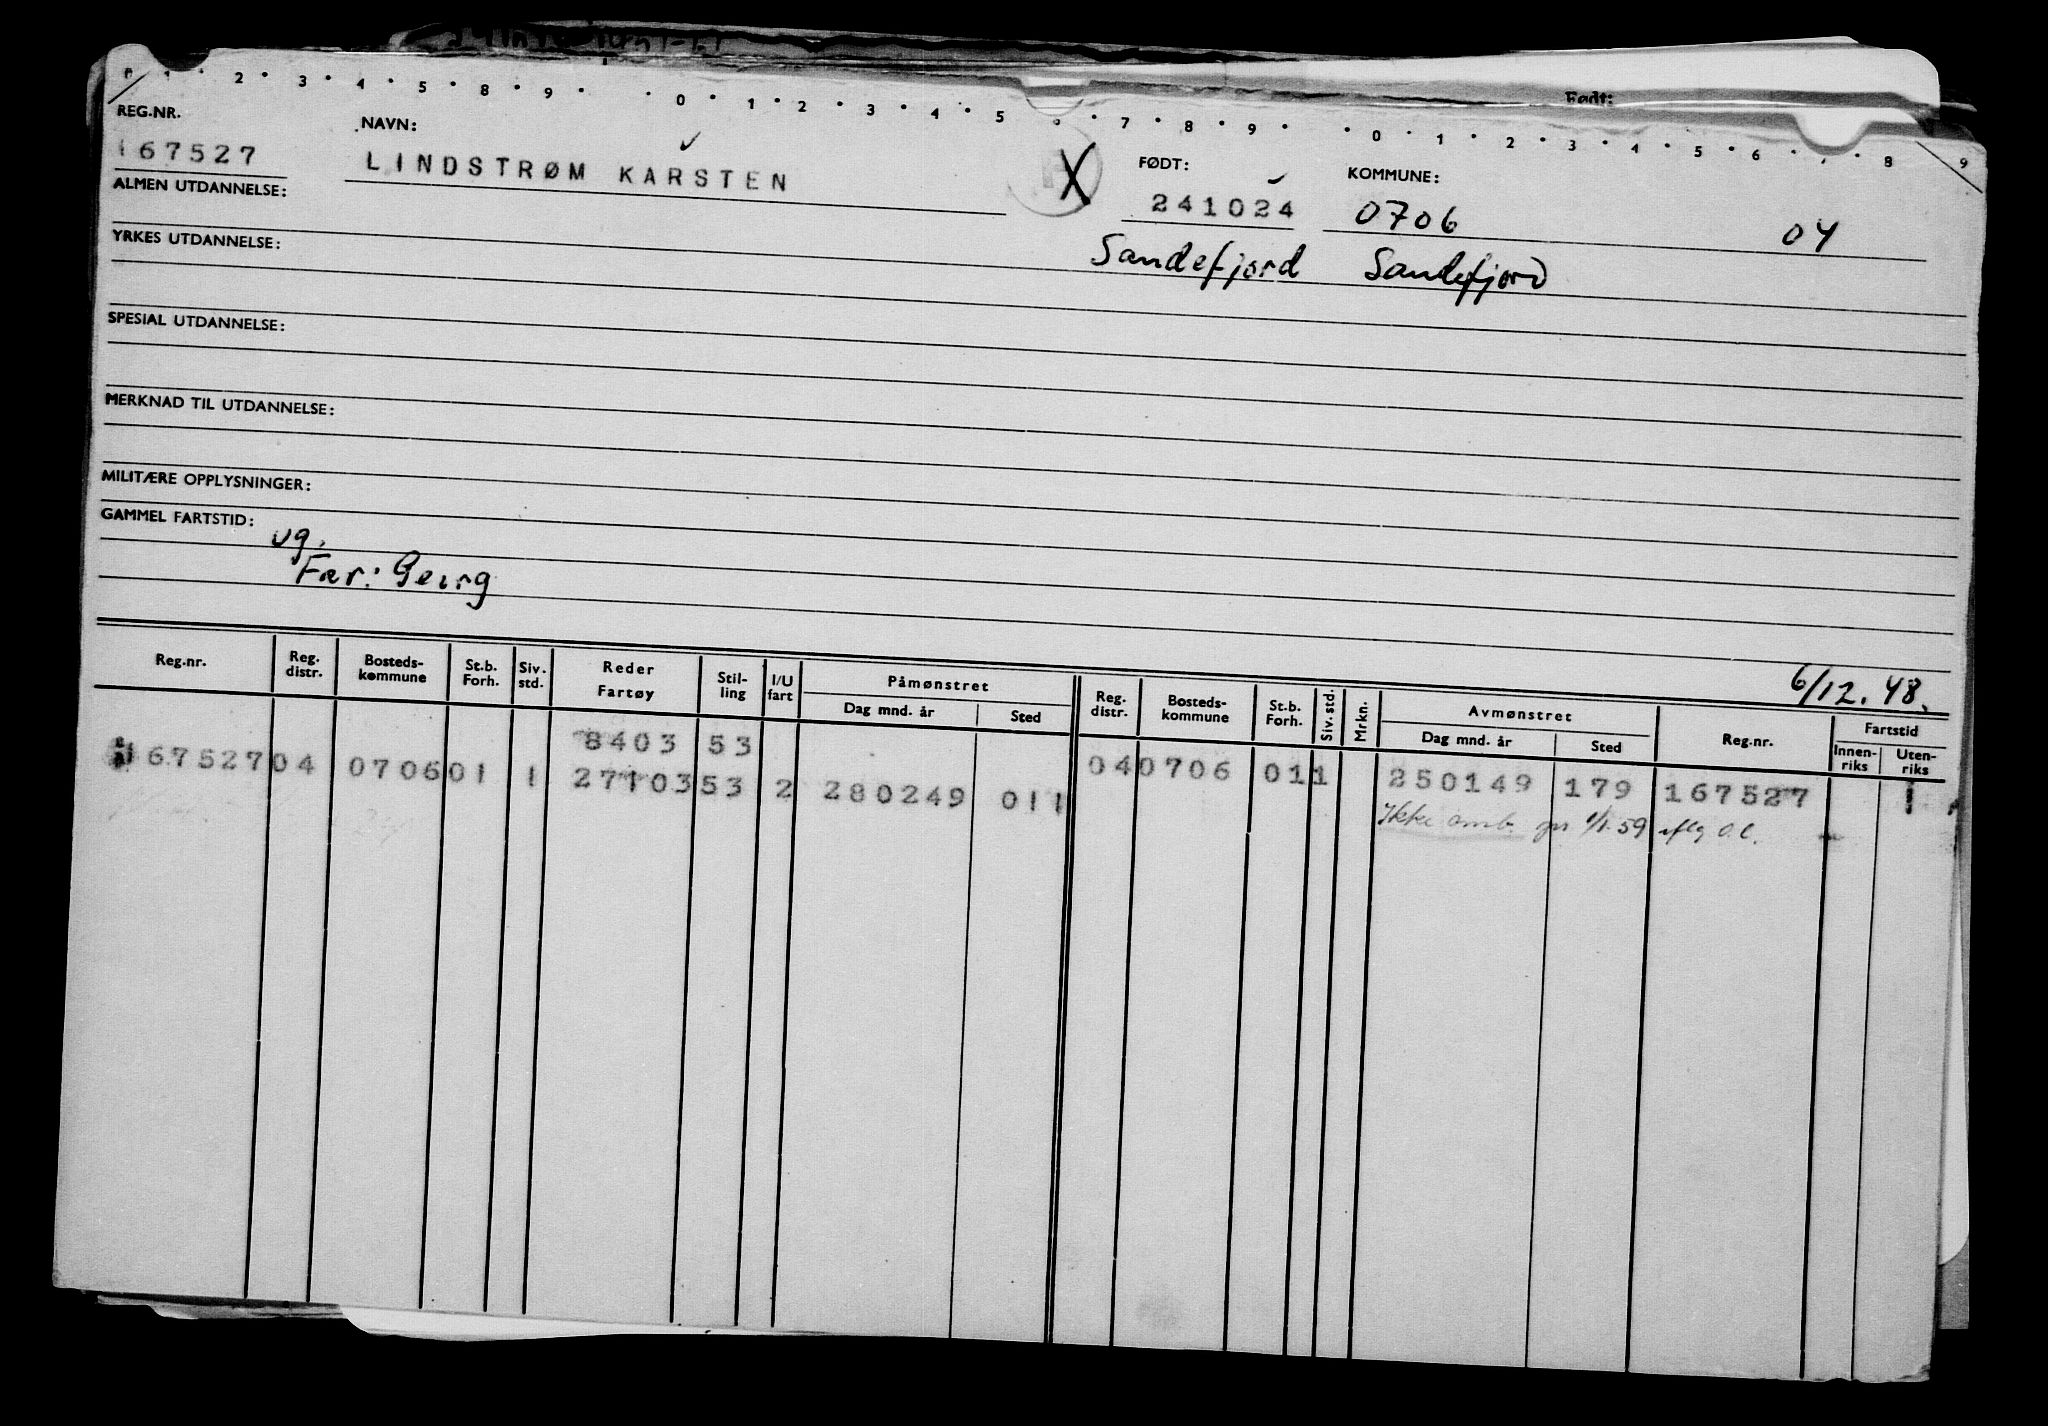 0 1 · 2 · 3 · 4 · 5 · 8 · 9 · · 0 · 1 · 2 · 3 · 4 · 5 · 7 · 8 · 9 · · 0 · 1 · 2 · 3 · 4 · 5 · 6 · · 8 9
Født:
REG.NR. NAVN: FØDT: KOMMUNE:
167527 LINDSTRØM KARSTEN X 241024 0706 04
ALMEN UTDANNELSE:
Sandefjord Sandefjord
YRKES UTDANNELSE:
SPESIAL UTDANNELSE:
MERKNAD TIL UTDANNELSE:
MILITÆRE OPPLYSNINGER:
GAMMEL FARTSTID:
ug.
Far: Georg
6/12.48.
Reg.nr. Reg. distr. Bosteds-kommune St.b. Forh. Siv. std. Reder Fartøy Stil-ling I/U fart Påmønstret Dag mnd. år Sted Reg. distr. Bosteds-kommune St.b. Forh. Siv. std. Mrkn. Avmønstret Dag mnd. år Sted Reg.nr. Fartstid Innen-riks Uten-riks
8403 53
167527 04 0706 01 1 27103 53 2 280249 011 04 0706 01 1 250149 179 167527 1
Ikke omb. pr 1/1-59 iflg O.l.